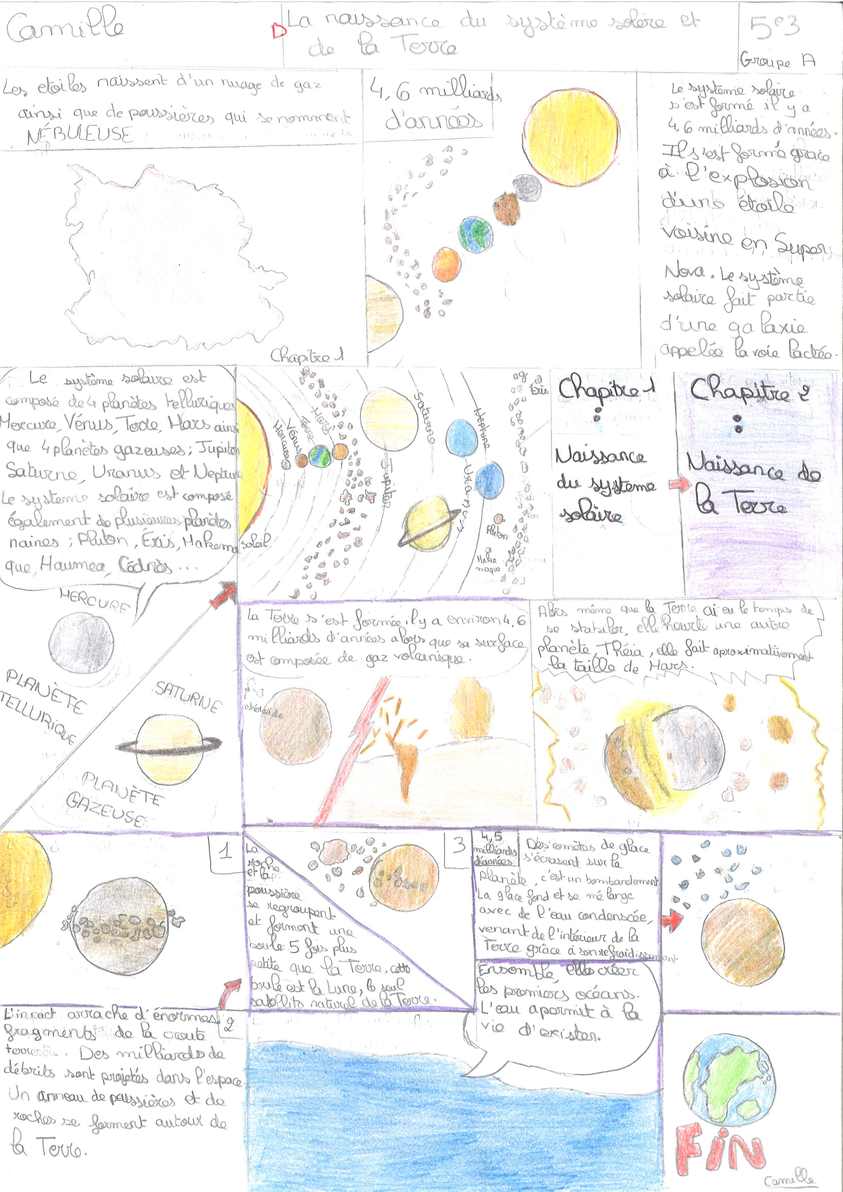 Camille
La naissance du système solère et
de la Terre
5e3
Groupe A
Les etoiles naissent d'un nuage de gaz
ainsi que de poussières qui se nomment
NÉBULEUSE
Chapitre 1
4,6 milliards
d'années
Le système solaire
s'est formé il y a
4,6 milliards d'années.
Il s'est formé grâce
à l'explosion
d'une étoile
voisine en Super
Nova. Le système
solaire fait partie
d'une galaxie
appelée la voie lactée.
Le système solaire est
composé de 4 planètes telluriques
Mercure, Vénus, Terre, Mars ains
que 4 planètes gazeuses ; Jupiter
Saturne, Uranus et Neptune
Le système solaire est composé
également de plusieures planètes
naines ; Pluton, Eris, Makema
que, Haumea, Cédrès...
soleil
Mercure
Vénus
Terre
Mars
Jupiter
Saturne
Uranus
Neptune
Eris
Pluton
Make
maque
Chapitre 1
:
Naissance
du système
solaire
Chapitre 2
:
Naissance de
la Terre
MERCURE
PLANÈTE
TELLURIQUE
SATURNE
PLANÈTE
GAZEUSE
La Terre s'est formée il y a environ 4,6
milliards d'années alors que sa surface
est composée de gaz volcanique.
Alors même que la Terre ai eu le temps de
se stabiler, elle heurte une autre
planète, Théia, elle fait aproximativement
la taille de Mars.
1
L'inact arrache d'énormes
fragments de la croute
terrestre. Des milliards de
débrits sont projetés dans l'espace
Un anneau de poussières et de
roches se forment autour de
la Terre.
2
La
roche
et la
poussière
se regroupent
et forment une
boule 5 fois plus
petite que la Terre. cette
boule est la Lune, le seul
satellite naturel de la Terre.
3
4,5
milliards
d'années
Des comètes de glace
s'écrasent sur la
planète, c'est un bombardement
La glace fond et se mélange
avec de l'eau condensée,
venant de l'intérieur de la
Terre grâce à son refroidissement.
Ensemble, elle créer
les premiers océans.
L'eau apermit à la
vie d'exister.
FIN
Camille